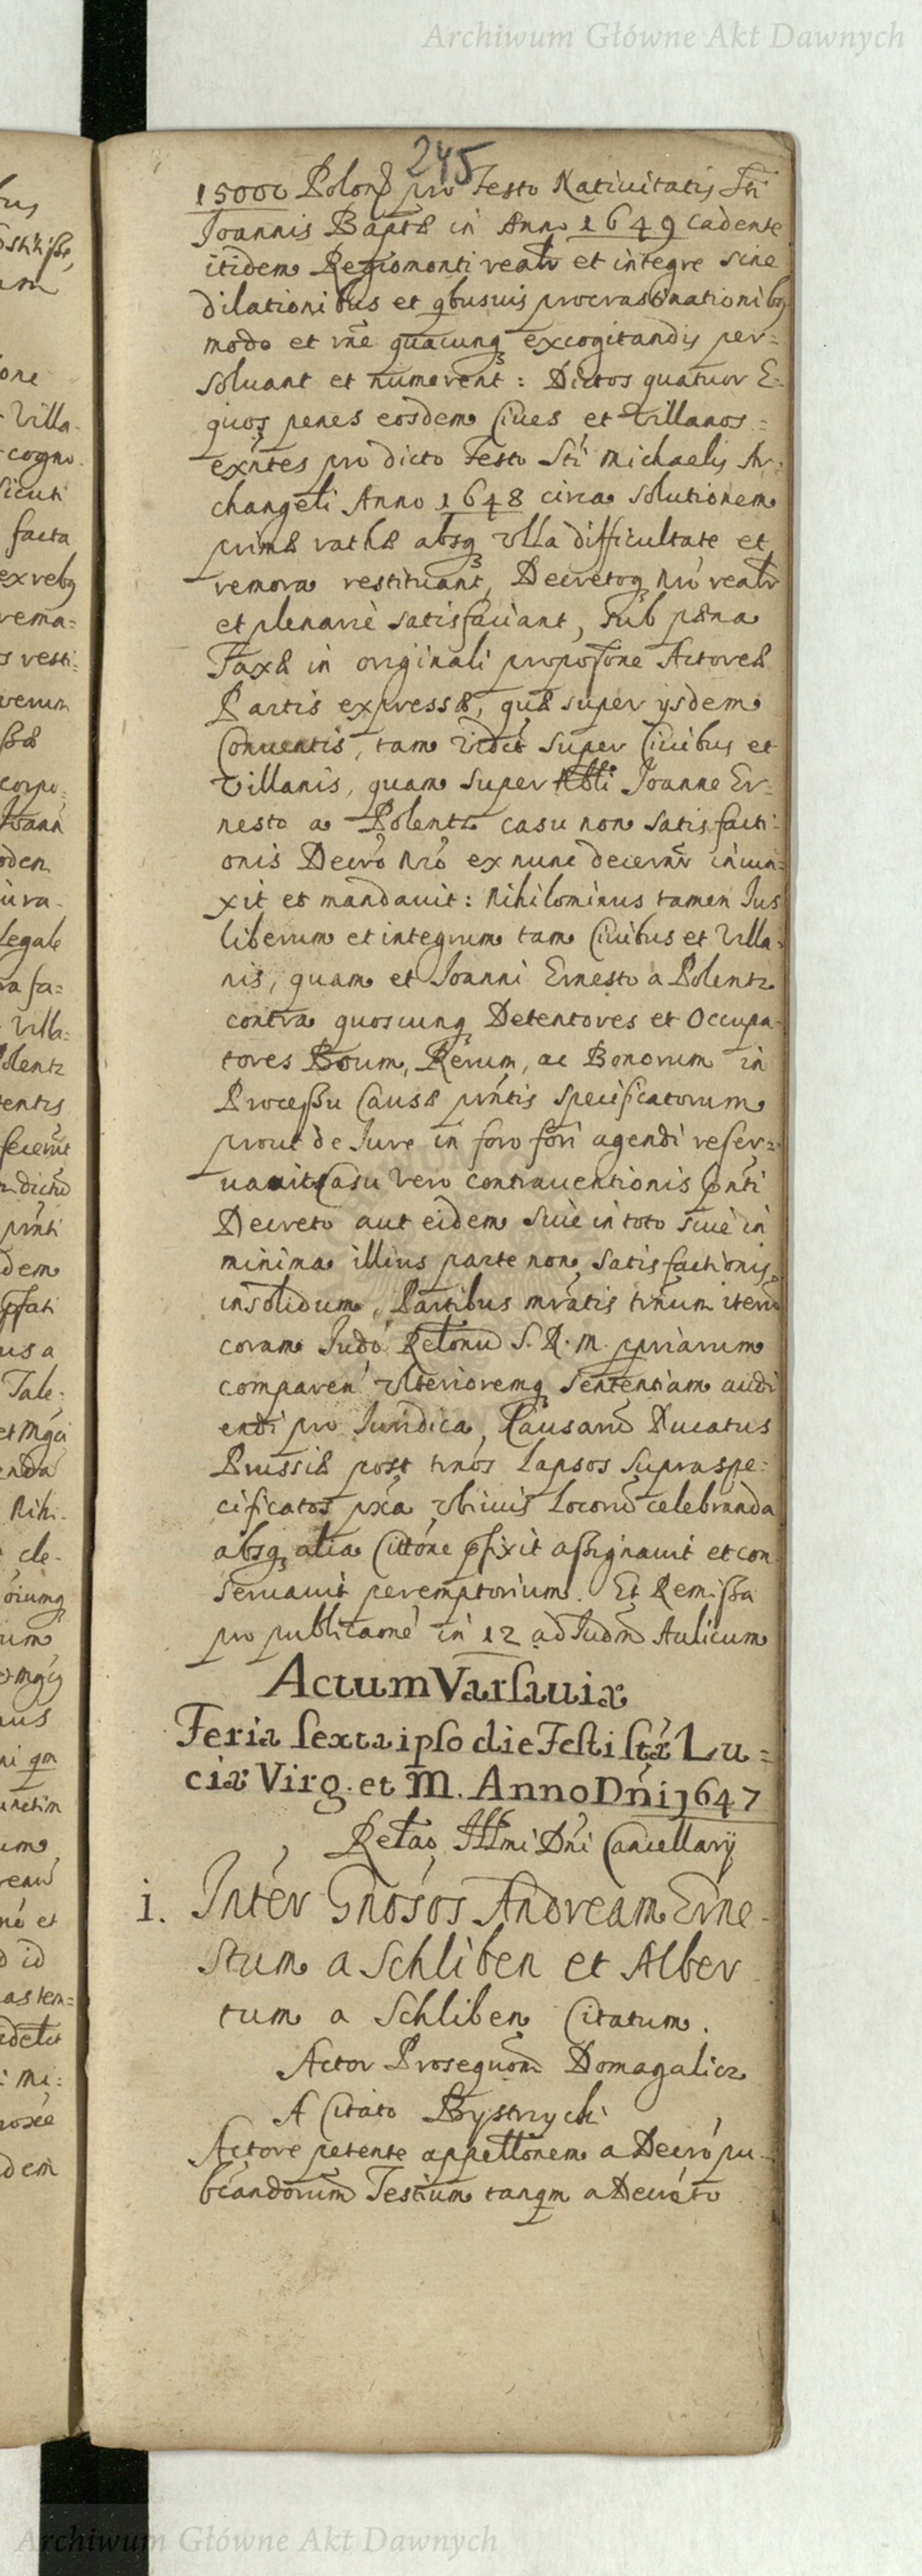 Archiwum Główne Akt Dawnych
245
15000 Polon pro Festo Natiuitatis Sti
Joannis Baptæ in Anno 1649 cadente
itidem Regiomonti realr et integre sine
dilationibus et qbusuis procrastinationibq
modo et rne quacunq excogitandis per=
soluant et numerent: Dictos quatuor E=
quos penes eosdem Ciues et Villanos =
exntes pro dicto Festo Sti Michaelis Ar=
changeli Anno 1648 circa solutionem
primæ rathæ absq vlla difficultate et
remora restituant, Decretoq nro realr
et plenarie satisfaciant, sub pæna
Taxæ in originali proposone Actoreæ
Partis expressæ, quæ super ijsdem
Conuentis, tam vidct super Ciuibus et
Villanis, quam super Nbli Joanne Er=
nesto a Polentz casu non satisfacti=
onis Decro Nro ex nunc decernr iniun=
xit et mandauit: Nihilominus tamen Jus
liberum et integrum tam Ciuibus et Villa=
nis, quam et Joanni Ernesto a Polentz
contra quoscunq Detentores et Occupa=
tores Boum, Rerum, ac Bonorum in
Processu Causæ prntis specificatorum
prout de Jure in foro fori agendi reser=
uauit Casu vero contrauentionis pnti
Decreto aut eidem siue in toto siue in
minima illius parte non satisfactionis
insolidum, Partibus mratis trnum iteru
coram Judo Retonu S. R. M. ppriarum
comparen vlterioremq Sententiam audi
endi pro Juridica, Causaru Ducatus
Prussiæ post trnos lapsos supraspe=
cificatos pxa vbiuis Locoru celebranda
absq alia Cittone pfixit assignauit et con
seruauit peremptorium. Et Remissa
pro publicatne in 12 ad Judm Aulicum
Actum Varsauiæ
Feria sexta ipso die Festi stæ Lu=
ciæ Virg. et M. Anno Dni 1647
Retao Illmi Dni Cancellarij
1. Inter Gnosos Andream Erne-
stum a Schliben et Alber
tum a Schliben Citatum.
Actor Prosequom Domagalicz
A Citato Bystrycki
Actore petente appellonem a Decro pu-
bcandorum Testium tanqm a Decreto
Archiwum Główne Akt Dawnych